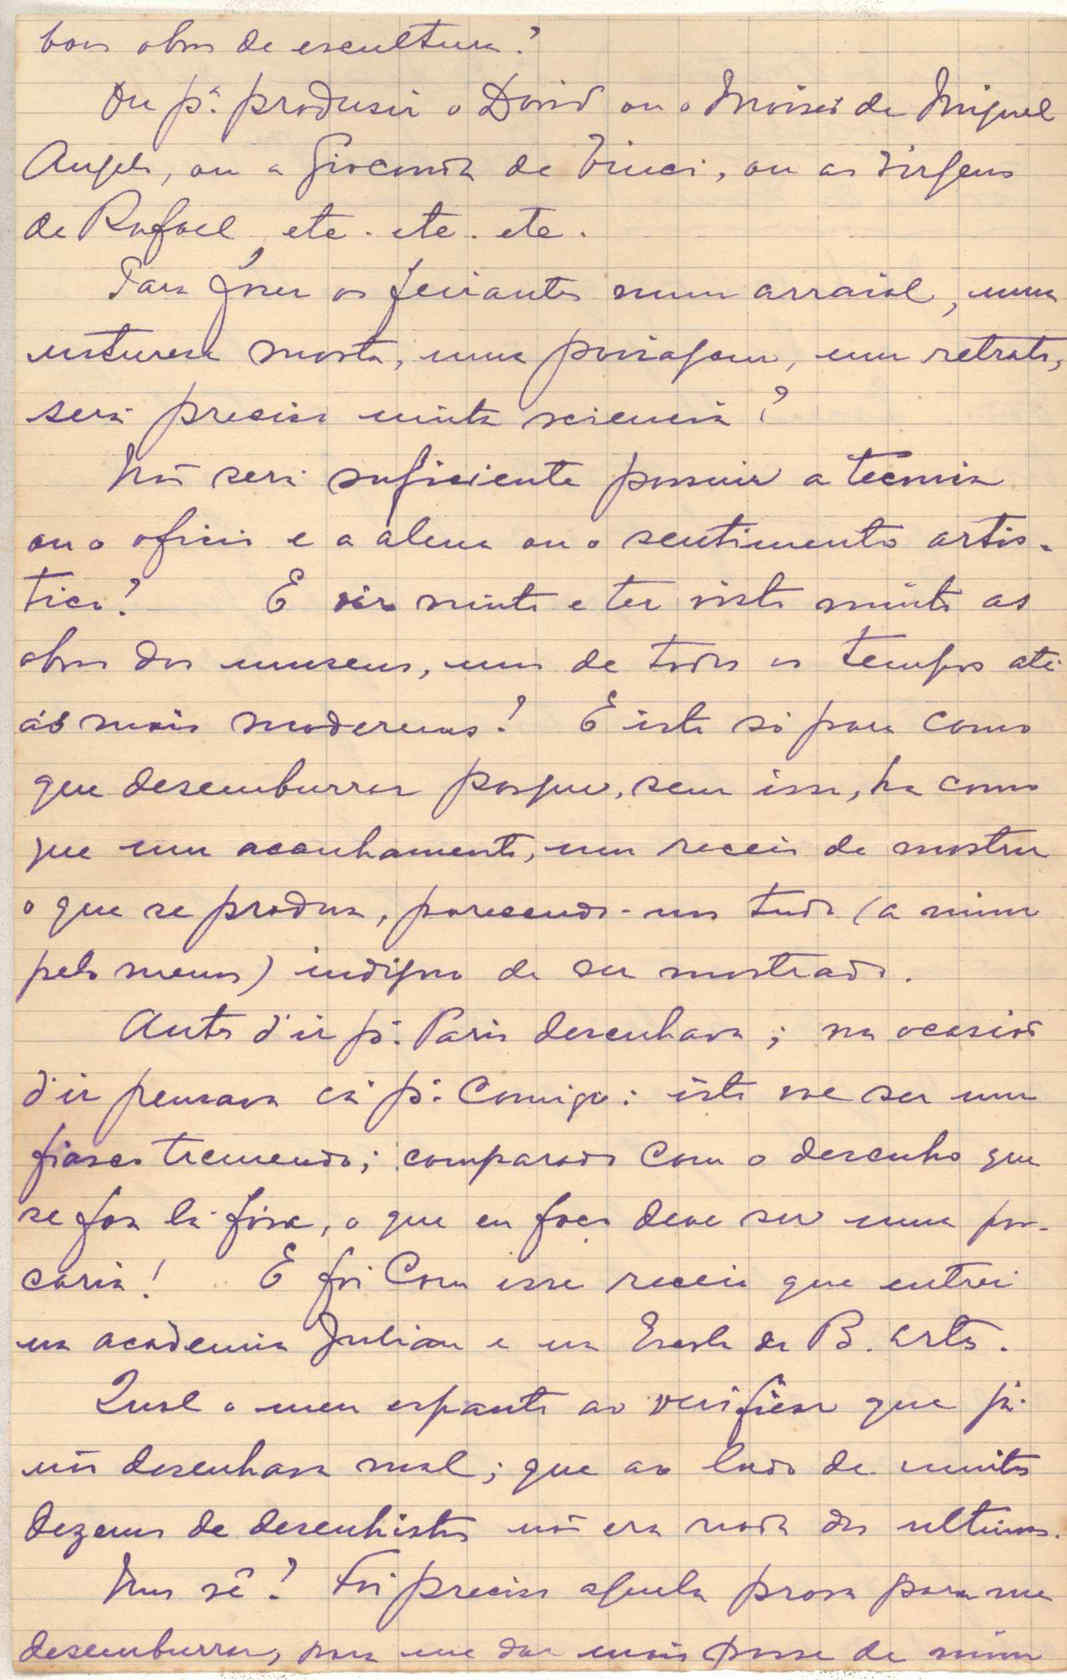 boas obras de escultura?
Ou pª. produsir o David ou o Moisés de Miguel
Angelo, ou a Gioconda de Vinci, ou as virgens
de Rafael, etc. etc. etc.
Para fazer os feirantes num arraial, uma
natureza morta, uma paisagem, um retrato,
será preciso muita sciencia?
Não será suficiente possuir a tecnica
ou o oficio e a alma ou o sentimento artis-
tico? E vêr muito e ter visto muito as
obras dos museus, umas de todos os tempos até
ás mais modernas? E isto só para como
que desemburrar porque, sem isso, ha como
que um acanhamento, um receio de mostrar
o que se produz, parecendo-nos tudo (a mim
pelo menos) indigno de ser mostrado.
Antes d'ir pª. Paris desenhava; na ocasião
d'ir pensava cá pª. comigo: isto vae ser um
fiasco tremendo; comparado com o desenho que
se faz lá fóra, o que eu faço deve ser uma por-
caria! E foi com esse receio que entrei
na academia Julian e na Escola de B. artes.
Qual o meu espanto ao verificar que já
não desenhava mal; que ao lado de muitas
dezenas de desenhistas não era nada dos ultimos.
Mas vê? Foi preciso aquela prova para me
desemburrar, para me dar mais posse de mim